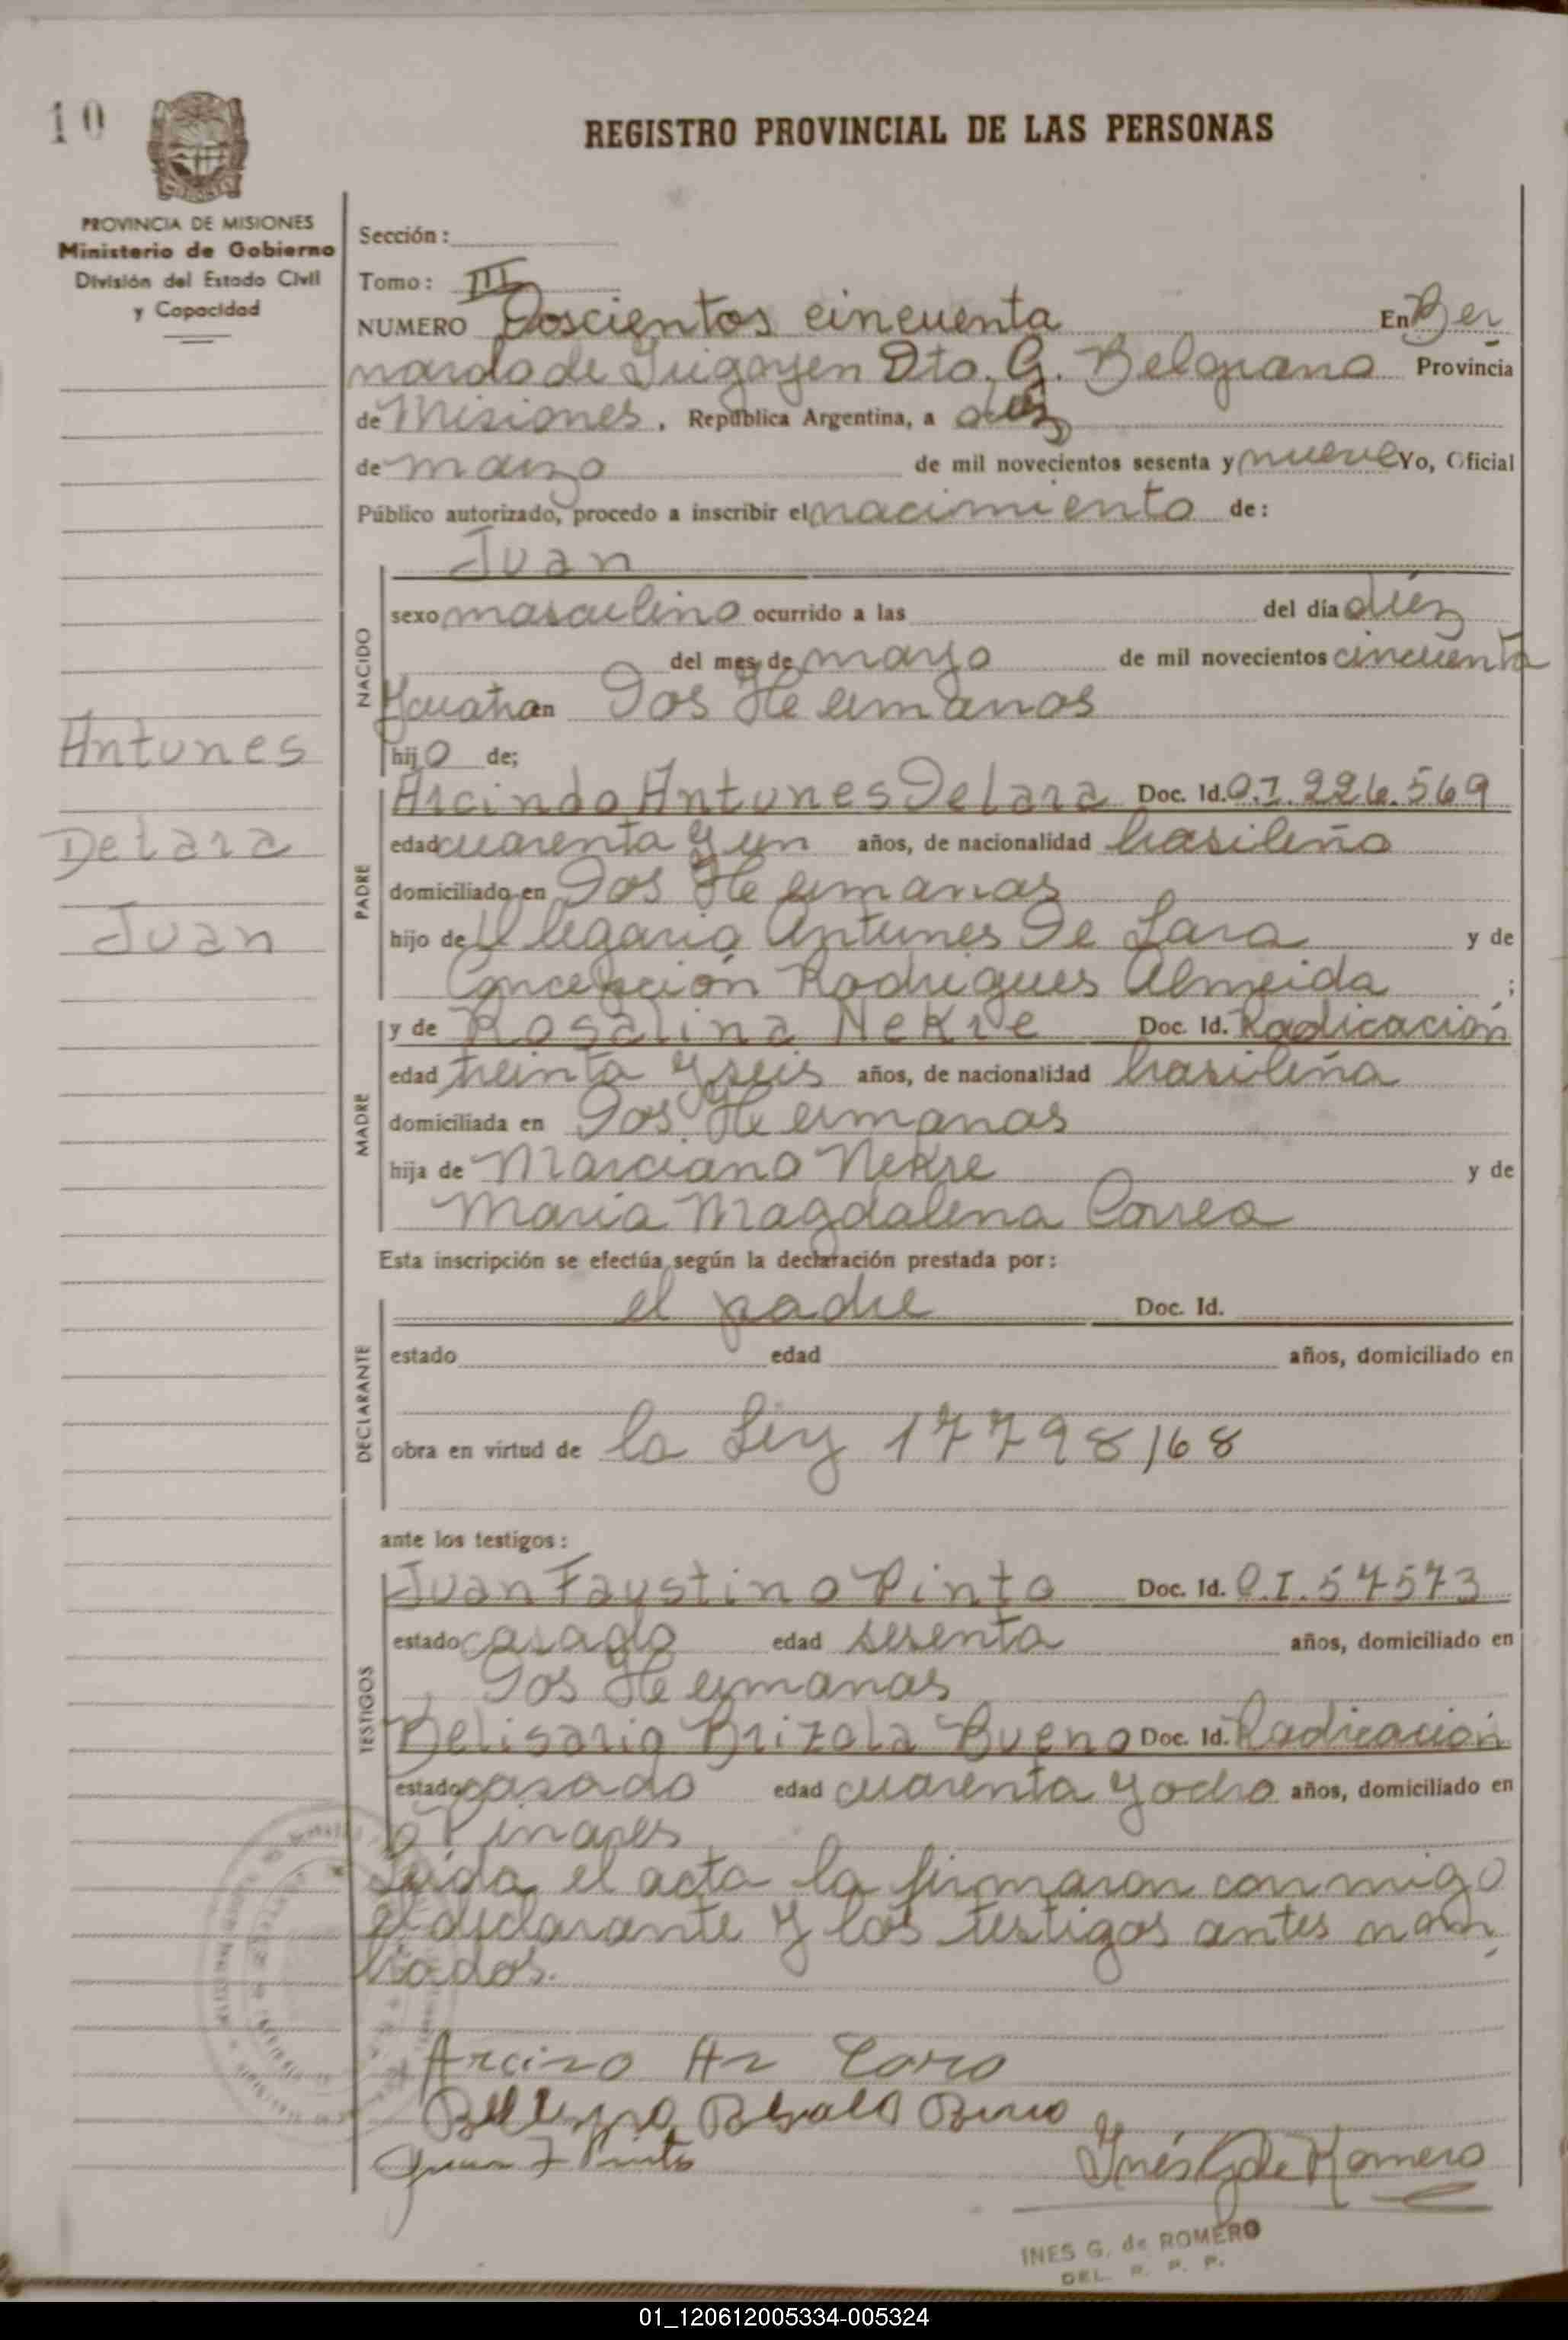 10
REGISTRO PROVINCIAL DE LAS PERSONAS
PROVINCIA DE MISIONES
Ministerio de Gobierno
División del Estado Civil
y Capacidad
Sección:
Tomo: III
NUMERO Doscientos cincuenta En Ber
nardo de Irigoyen Dto. G. Belgrano Provincia
de Misiones, República Argentina, a diez
de marzo de mil novecientos sesenta y nueve Yo, Oficial
Público autorizado, procedo a inscribir el nacimiento de:
Juan
NACIDO
sexo masculino ocurrido a las del día diez
del mes de mayo de mil novecientos cincuenta
y cuatro en Dos Hermanas
hijo de;
Antunes
Delara
Juan
PADRE
Arcindo Antunes Delara Doc. Id. C.I. 226.569
edad cuarenta y un años, de nacionalidad brasileño
domiciliado en Dos Hermanas
hijo de Ollegario Antunes De Lara y de
Concepción Rodrigues Almeida ;
MADRE
y de Rosalina Nekre Doc. Id. Radicación
edad treinta y seis años, de nacionalidad brasileña
domiciliada en Dos Hermanas
hija de Marciano Nekre y de
Maria Magdalena Correa
Esta inscripción se efectúa según la declaración prestada por:
DECLARANTE
el padre Doc. Id.
estado edad años, domiciliado en
obra en virtud de la Ley 17798/68
ante los testigos:
TESTIGOS
Juan Faustino Pinto Doc. Id. C.I. 57573
estado casado edad sesenta años, domiciliado en
Dos Hermanas
Belisario Brizola Bueno Doc. Id. Radicación
estado casado edad cuarenta y ocho años, domiciliado en
Pinares
Leida el acta la firmaron conmigo
el declarante y los testigos antes nom
brados.
Juan F Pinto
Inés G de Romero
INES G. de ROMERO
DEL. R. P. P.
01_120612005334-005324